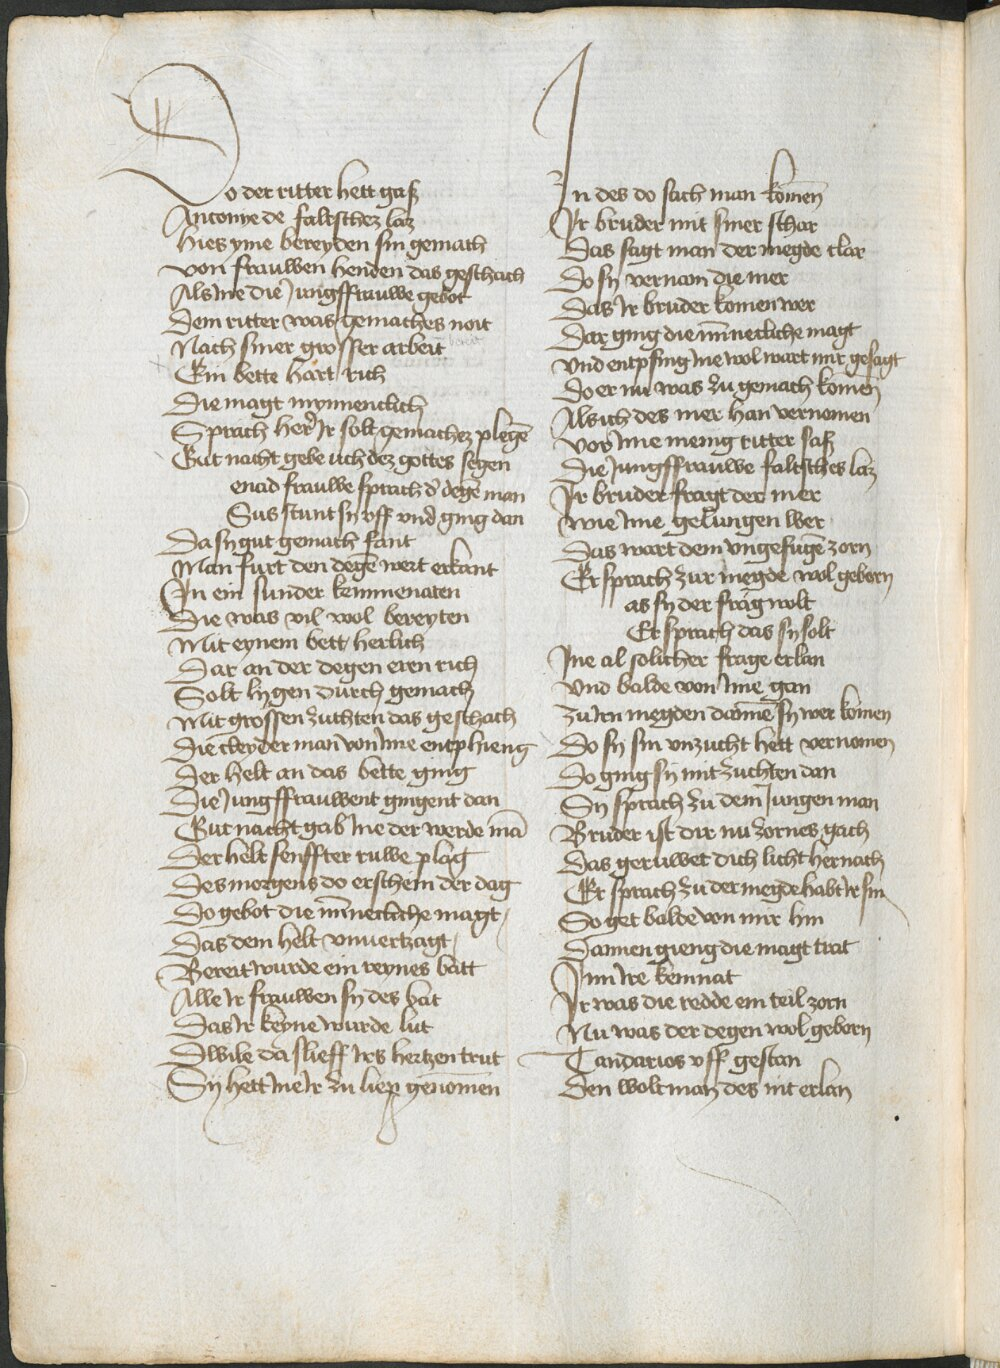 Do der ritter hett gaß
Antonye de faltschez laz
Hies yme bereyden sin gemach
von frauwen henden das geschach
Als ine die jungffrauwe gebot
Dem ritter was gemaches noit
Nach siner grosser arbeit
Ein bette hart rich
Die magt mynnenclich
Sprach her ir solt gemachez plegē
Gut nacht gebe uch dez gottes segen
enad frauwe sprach d' degē man
Sus stunt sy vff vnd ging dan
Da sy gut gemach fant
Man furt den degē wert erkant
In ein sunder kemmenaten
Die was vil wol bereyten
Mit eynem bett herlich
Dar an der degen eren rich
Solt lygen durch gemach
Mit grossen zuchten das geschach
Die cleyder man von ime entphieng
Der helt an das bette ging
Die jungffrauwent gingent dan
Gut nacht gab ine der werde mā
Der helt senffter ruwe plag
Des morgens do erschein der dag
Do gebot die mīnecliche magt
Das dem helt vnuertzagt
Bereit wurde ein reynes batt
Alle ir frauwen sy des bat
Das ir keyne wurde lut
Dwile da slieff irs hertzen trut
Sy hett ine ir zu liep genomen
In des do sach man komen
Ir bruder mit siner schar
Das sagt man der megde clar
Do sy vernam die mer
Das ir bruder komen wer
Dar ging die mīnecliche magt
Vnd entpfing ine wol wart mir gesagt
Do er nu was zu gemach komen
Als ich des mer han vernomen
Vor ime menig ritter saß
Die jungffrauwe faltsches laz
Ir bruder fragt der mer
Wie ime gelungen wer
Das wart dem vngefugē zorn
Er sprach zur megde wol geborn
as sy der frag wolt
Er sprach das sy solt
Ine al solicher frage erlan
Vnd balde von ime gan
Zu irn megden danne sy wer komen
Do sy sin vnzucht hett vernomen
Do ging sy mit zuchten dan
Sy sprach zu dem jungen man
Bruder ist dir nu zornes gach
Das geruwet dich licht hernach
Er sprach zu der megde habt ir sin
So get balde von mir hin
Dannen gieng die magt trat
In ire kemnat
Ir was die redde ein teil zorn
Nu was der degen wol geborn
Tandarios vff gestan
Den wolt man des nit erlan